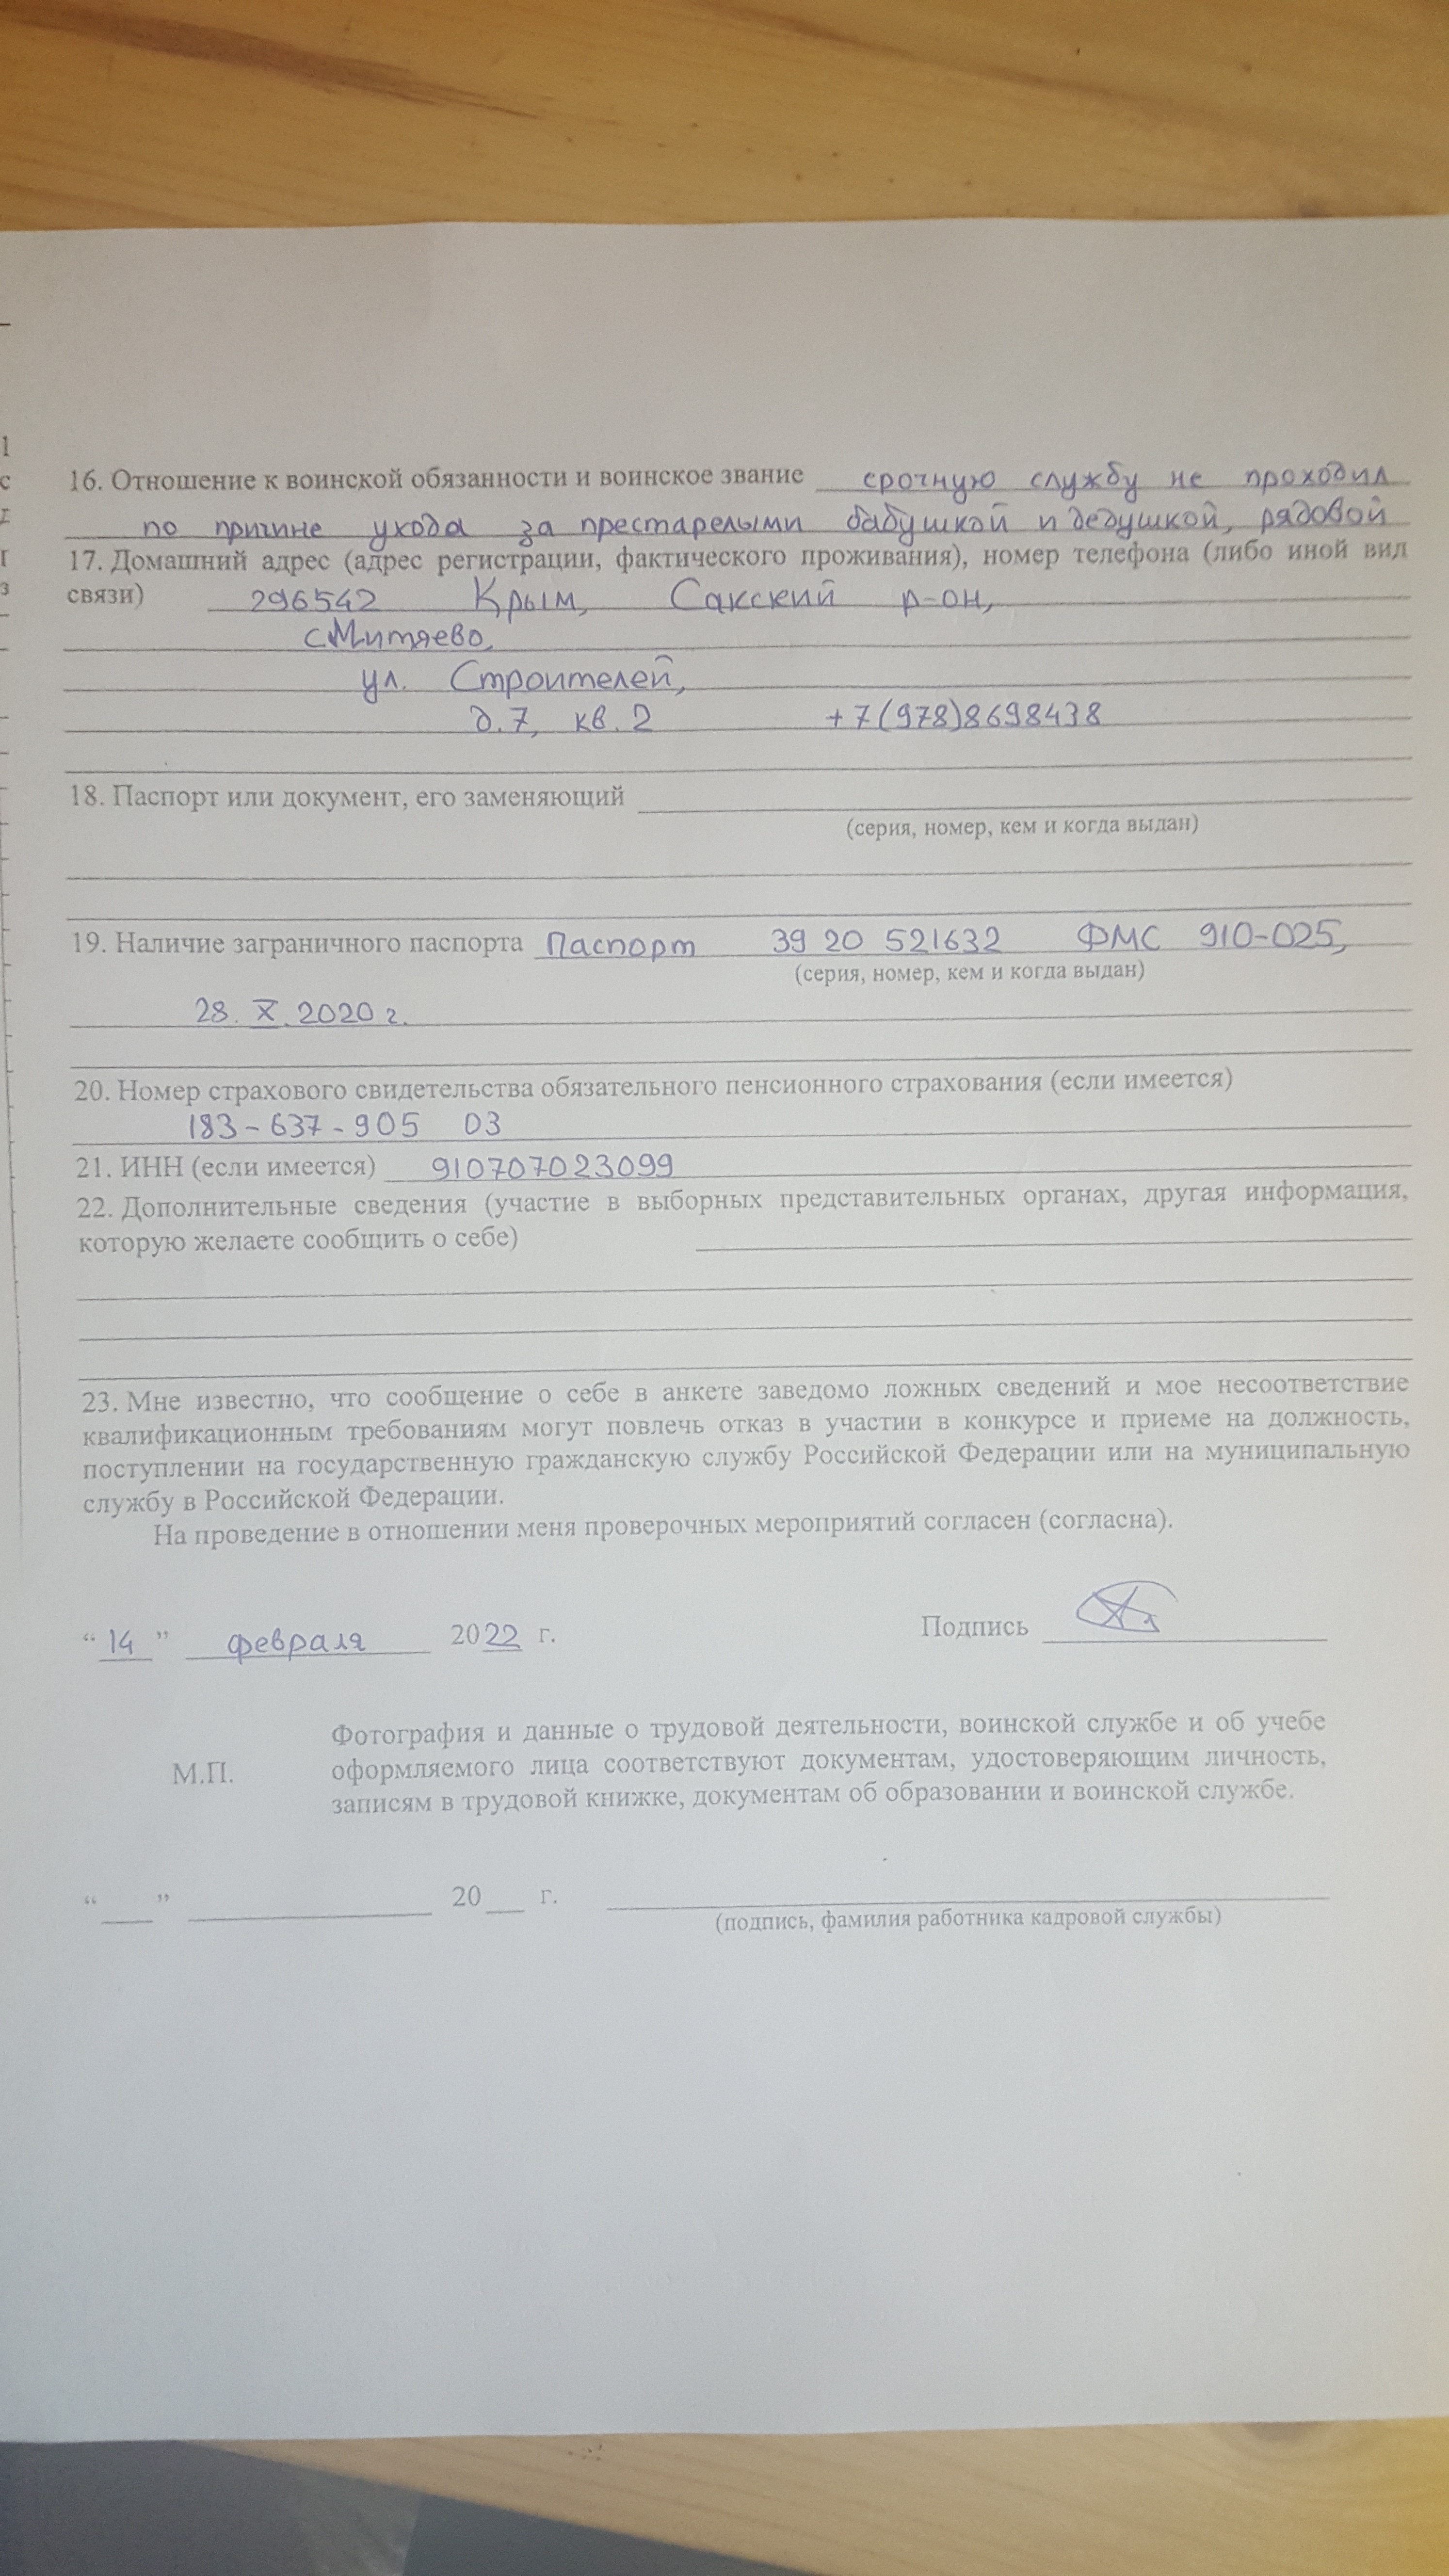 16. Отношение к воинской обязанности и воинское звание срочную службу не проходил
по причине ухода за престарелыми бабушкой и дедушкой, рядовой
17. Домашний адрес (адрес регистрации, фактического проживания), номер телефона (либо иной вид
связи) 296542 Крым, Сакский р-он,
с.Митяево,
ул. Строителей,
д.7, кв.2 +7(978)8698438
18. Паспорт или документ, его заменяющий
(серия, номер, кем и когда выдан)
19. Наличие заграничного паспорта Паспорт 39 20 521632 ФМС 910-025,
(серия, номер, кем и когда выдан)
28.X.2020 г.
20. Номер страхового свидетельства обязательного пенсионного страхования (если имеется)
183-637-905 03
21. ИНН (если имеется) 910707023099
22. Дополнительные сведения (участие в выборных представительных органах, другая информация,
которую желаете сообщить о себе)
23. Мне известно, что сообщение о себе в анкете заведомо ложных сведений и мое несоответствие
квалификационным требованиям могут повлечь отказ в участии в конкурсе и приеме на должность,
поступлении на государственную гражданскую службу Российской Федерации или на муниципальную
службу в Российской Федерации.
На проведение в отношении меня проверочных мероприятий согласен (согласна).
“14” февраля 2022 г. Подпись
Фотография и данные о трудовой деятельности, воинской службе и об учебе
М.П. оформляемого лица соответствуют документам, удостоверяющим личность,
записям в трудовой книжке, документам об образовании и воинской службе.
“___” 20__ г.
(подпись, фамилия работника кадровой службы)